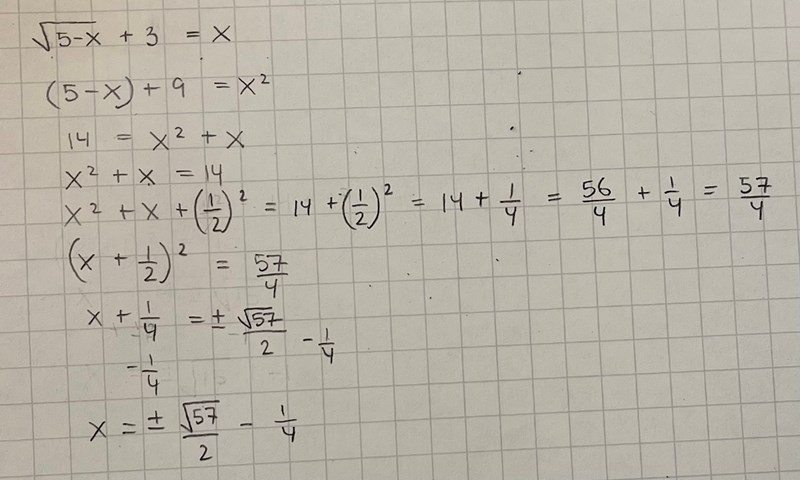 √(5-x) + 3 = x
(5-x) + 9 = x²
14 = x² + x
x² + x = 14
x² + x + (1/2)² = 14 + (1/2)² = 14 + 1/4 = 56/4 + 1/4 = 57/4
(x + 1/2)² = 57/4
x + 1/4 = ± √57/2 - 1/4
- 1/4
x = ± √57/2 - 1/4